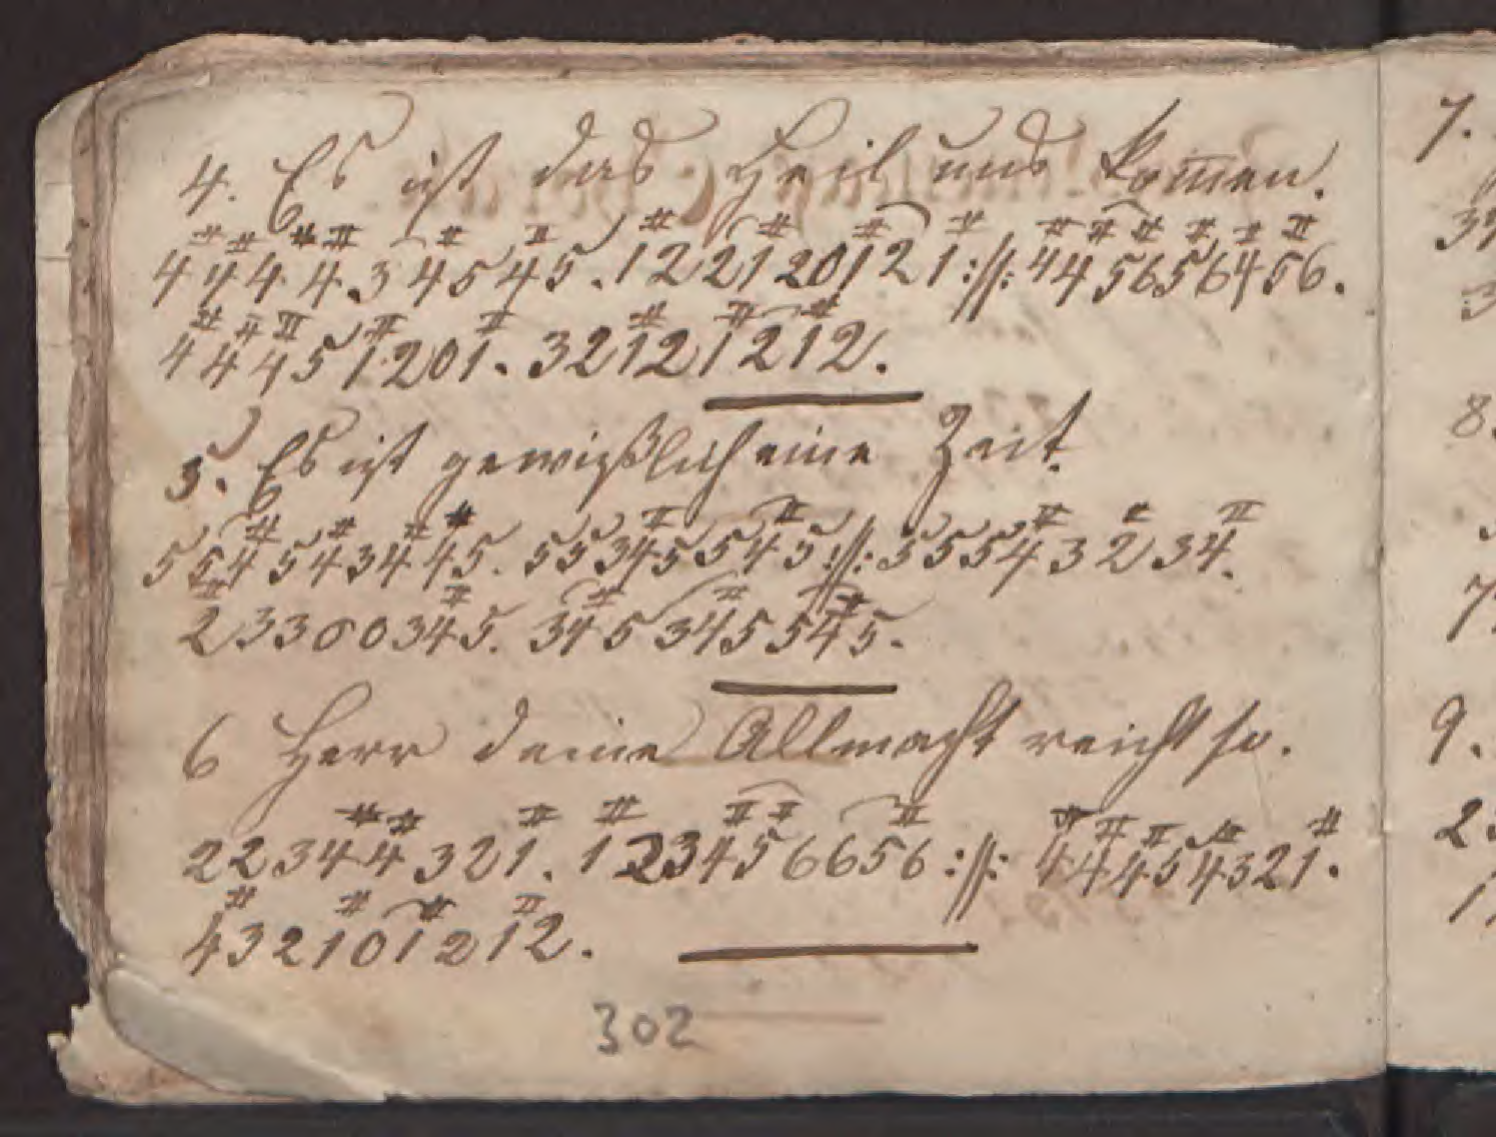 4. Es ist das Heil uns kom̅en.
4 4 4 4 3 4 5 4 5 . 1 2 2 1 2 0 1 2 1 :||: 4 4 5 6 5 6 4 5 6 .
4 4 4 5 1 2 0 1 . 3 2 1 2 1 2 1 2 .
5. Es ist gewißlich eine Zeit.
5 5 4 5 4 3 4 4 5 . 5 5 3 4 5 5 4 5 :||: 5 5 5 4 3 2 3 4 .
2 3 3 0 0 3 4 5 . 3 4 5 3 4 5 5 4 5 .
6 Herr deine Allmacht reicht so.
2 2 3 4 4 3 2 1 . 1 2 3 4 5 6 6 5 6 :||: 4 4 4 5 4 3 2 1 .
4 3 2 1 0 1 2 1 2 .
302
7.
8.
9.